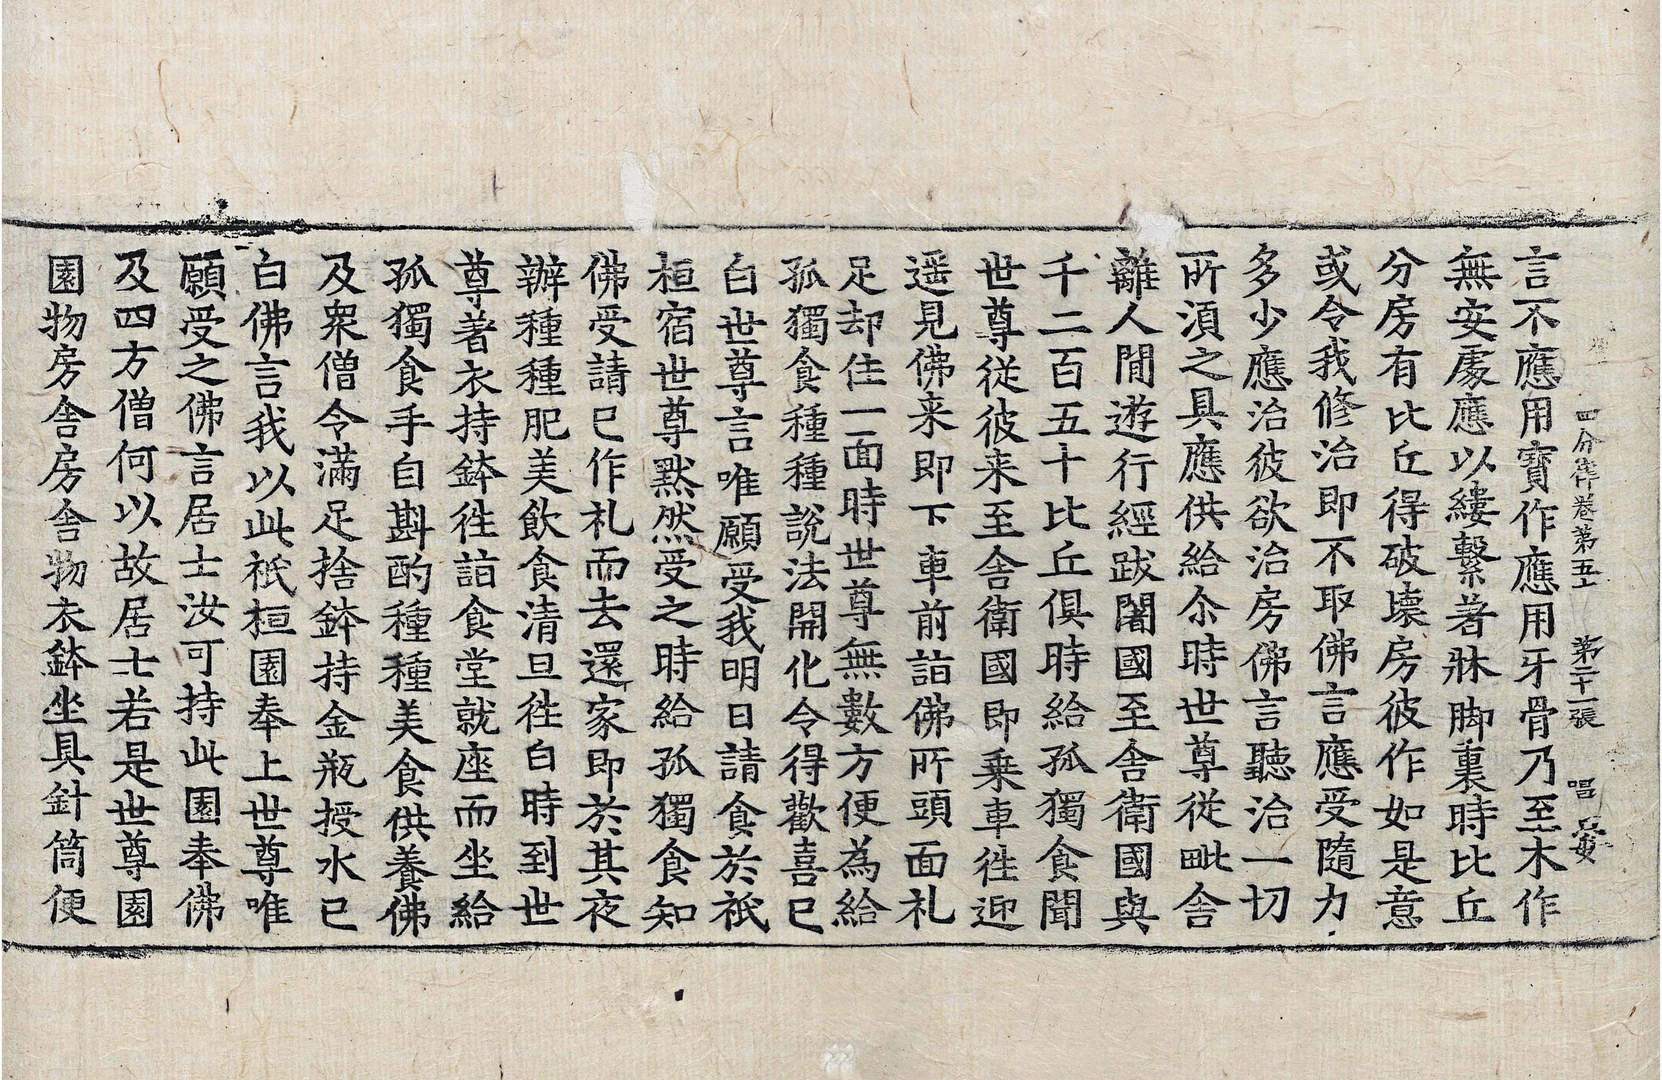 四分律卷第五十 第二十一張 唱
言不應用寶作應用牙骨乃至木作
無安處應以縷繫著牀脚裏時比丘
分房有比丘得破壞房彼作如是意
或令我修治即不取佛言應受隨力
多少應治彼欲治房佛言聽治一切
所須之具應供給尒時世尊從毗舍
離人間遊行經跋闍國至舍衛國與
千二百五十比丘俱時給孤獨食聞
世尊從彼来至舍衛國即乗車徃迎
遥見佛来即下車前詣佛所頭面礼
足却住一面時世尊無數方便為給
孤獨食種種說法開化令得歡喜已
白世尊言唯願受我明日請食於祇
桓宿世尊默然受之時給孤獨食知
佛受請已作礼而去還家即於其夜
辦種種肥美飲食清旦徃白時到世
尊著衣持鉢徃詣食堂就座而坐給
孤獨食手自斟酌種種美食供養佛
及衆僧令滿足捨鉢持金瓶授水已
白佛言我以此祇桓園奉上世尊唯
願受之佛言居士汝可持此園奉佛
及四方僧何以故居士若是世尊園
園物房舍房舍物衣鉢坐具針筒便